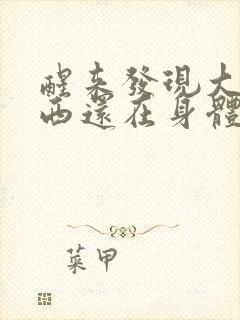 醒來發現大
西還在身體
菜甲